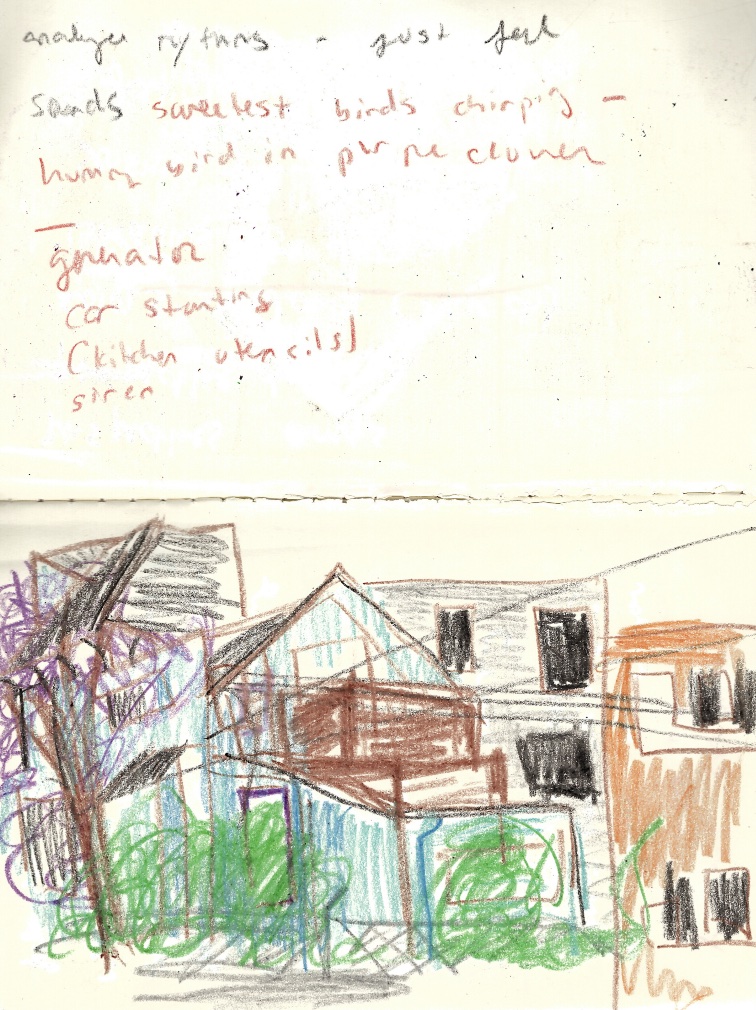 analyze rythms - just feel
sounds sweetest birds chirpig -
bird in purple clover
—
generator
car starting
(kitchen utencils)
siren